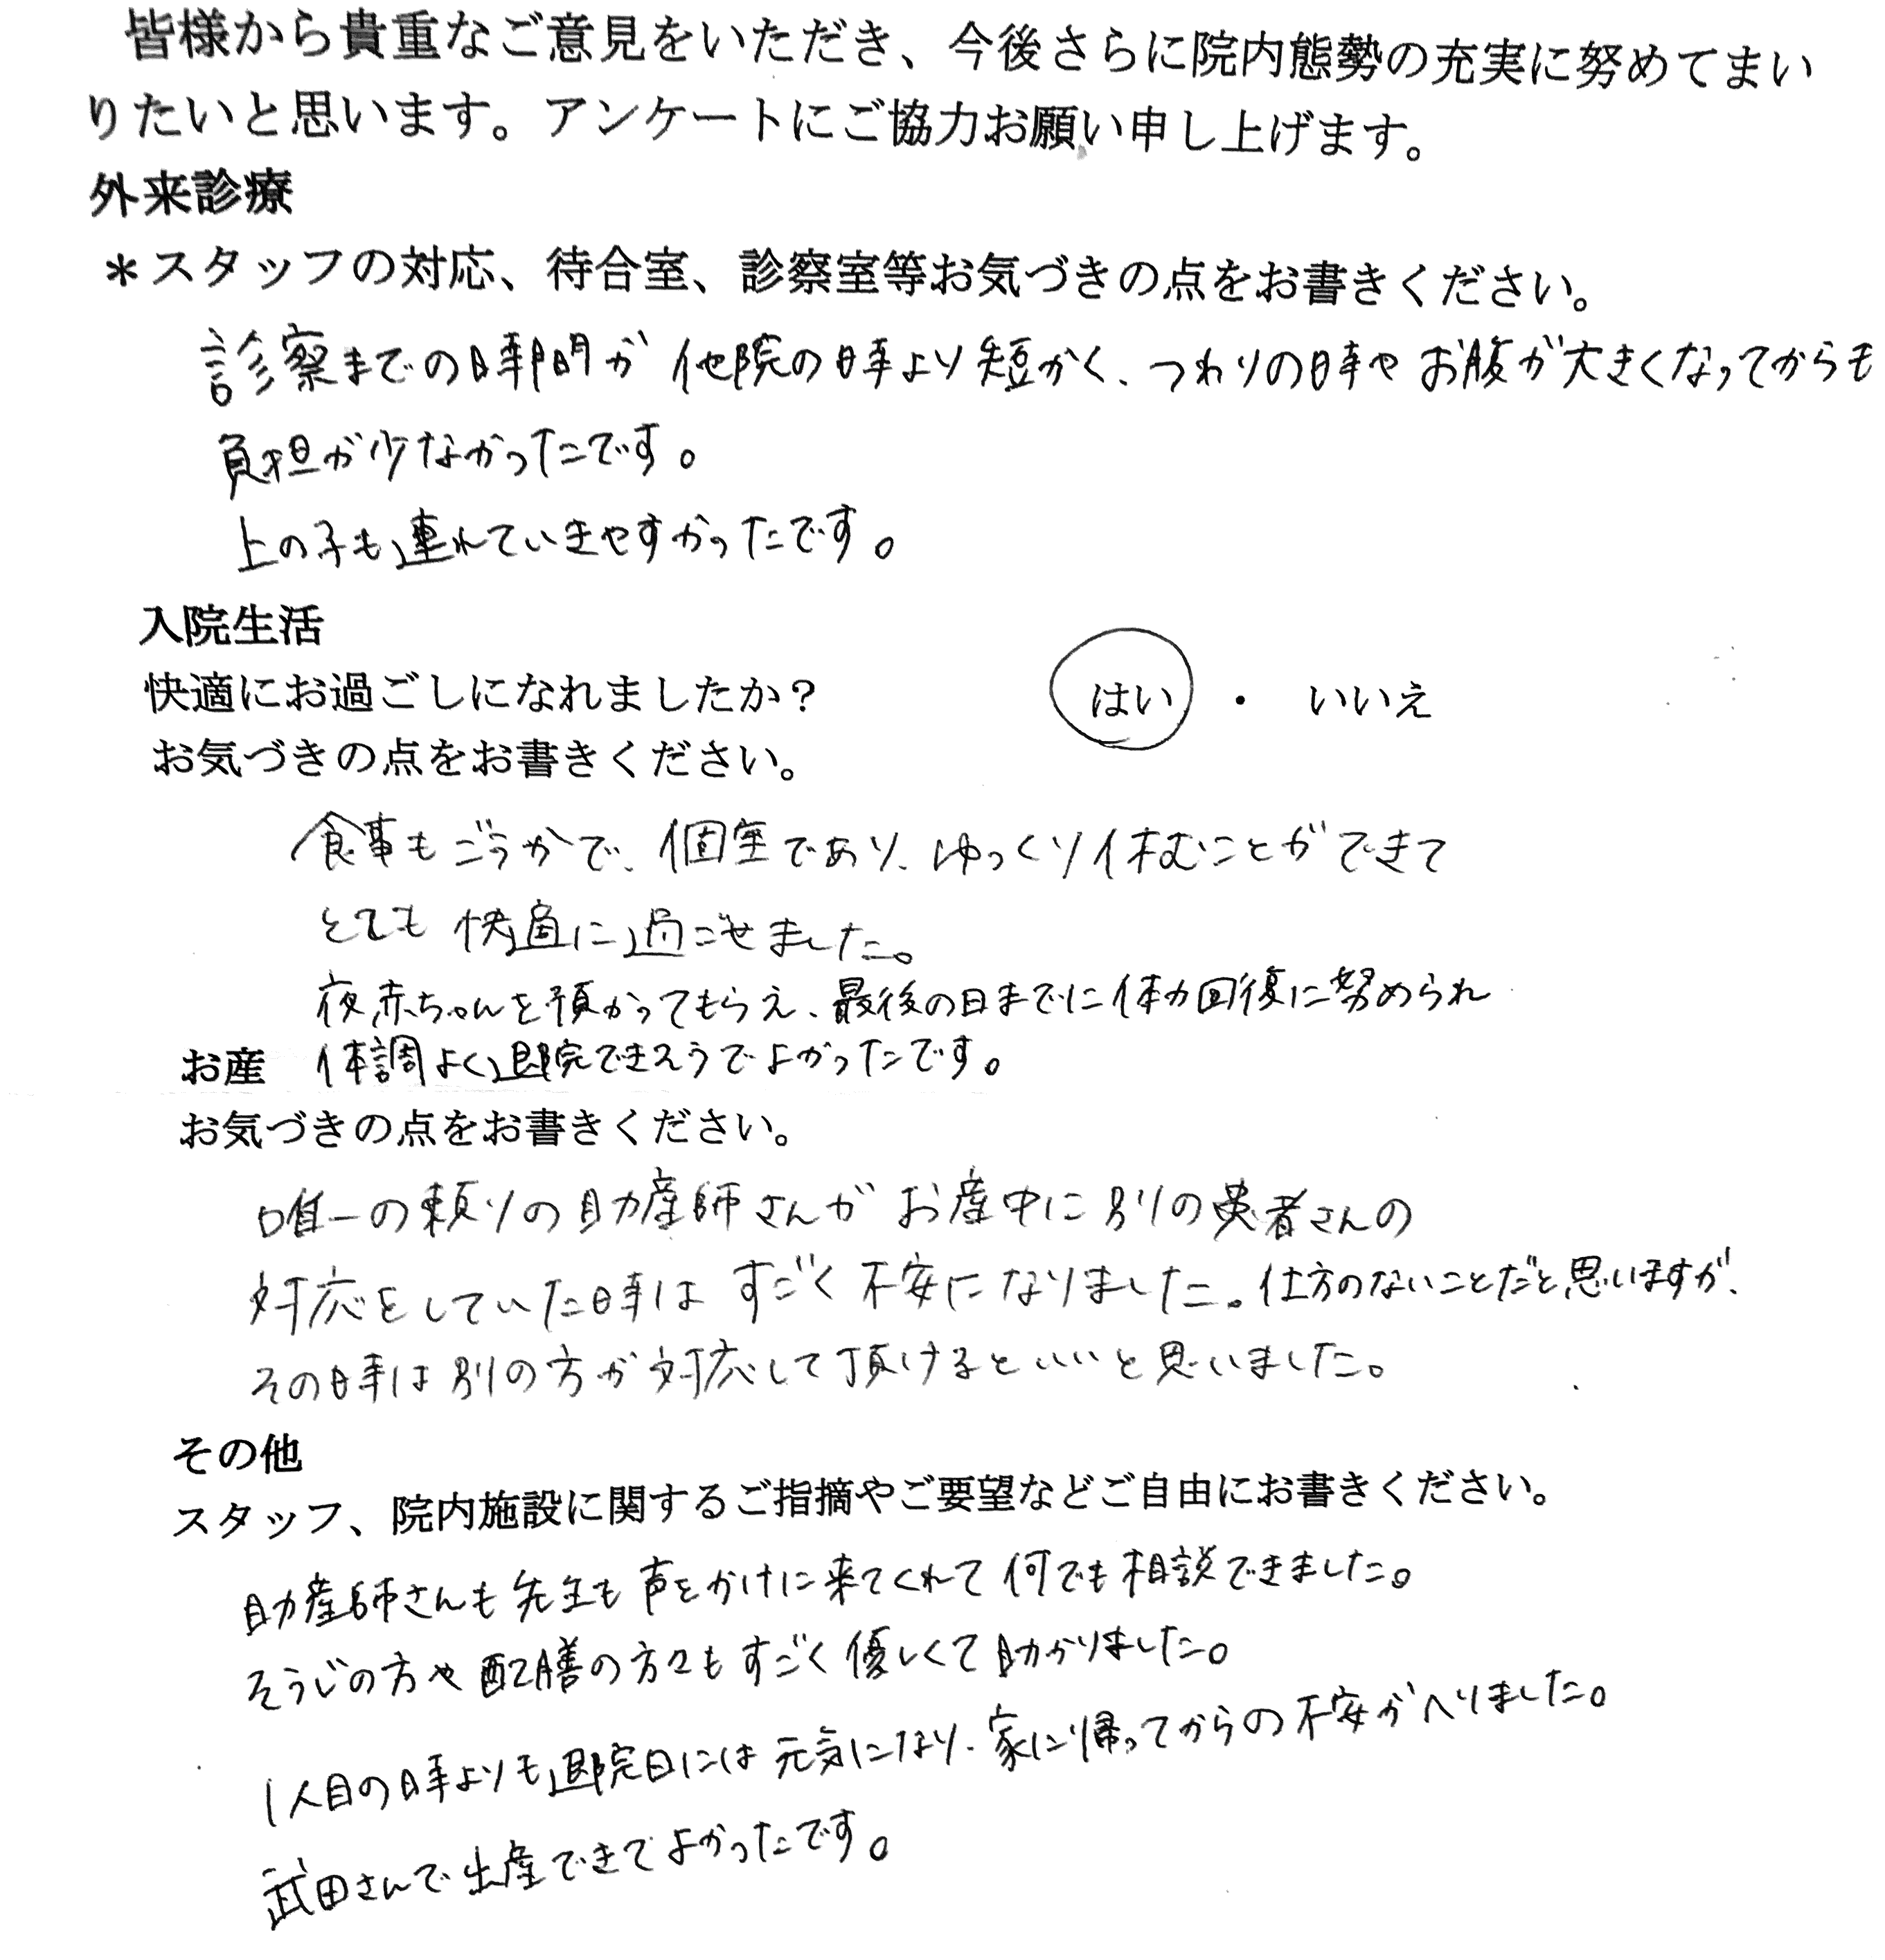 皆様から貴重なご意見をいただき、今後さらに院内態勢の充実に努めてまい
りたいと思います。アンケートにご協力お願い申し上げます。
外来診療
＊スタッフの対応、待合室、診察室等お気づきの点をお書きください。
診察までの時間が他院の時より短かく、つわりの時やお腹が大きくなってからも
負担が少なかったです。
上の子も連れていきやすかったです。
入院生活
快適にお過ごしになれましたか？ はい ・ いいえ
お気づきの点をお書きください。
食事もごうかで、個室であり、ゆっくり休むことができて
とても快適に過ごせました。
夜赤ちゃんを預かってもらえ、最後の日までに体力回復に努められ
お産 体調よく退院できそうでよかったです。
お気づきの点をお書きください。
唯一の頼りの助産師さんがお産中に別の患者さんの
対応をしていた時はすごく不安になりました。仕方のないことだと思いますが、
その時は別の方が対応して頂けるといいと思いました。
その他
スタッフ、院内施設に関するご指摘やご要望などご自由にお書きください。
助産師さんも先生も声をかけに来てくれて何でも相談できました。
そうじの方や配膳の方々もすごく優しくて助かりました。
1人目の時よりも退院日には元気になり、家に帰ってからの不安がへりました。
武田さんで出産できてよかったです。